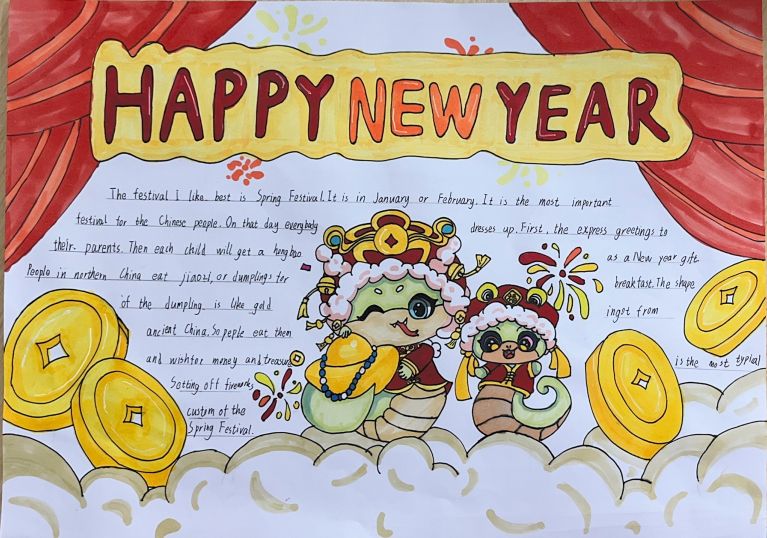 HAPPY NEW YEAR
The festival I like best is Spring Festival. It is in January or February. It is the most important
festival for the Chinese people. On that day everybody dresses up. First, the express greetings to
their parents. Then each child will get a hongbao as a New year gift.
People in northern China eat jiaozi, or dumplings for breakfast. The shape
of the dumpling is like gold ingot from
ancient China. So peple eat them
and wishfor money and treasure
Setting off fireworks is the most typical
custom of the
Spring Festival.